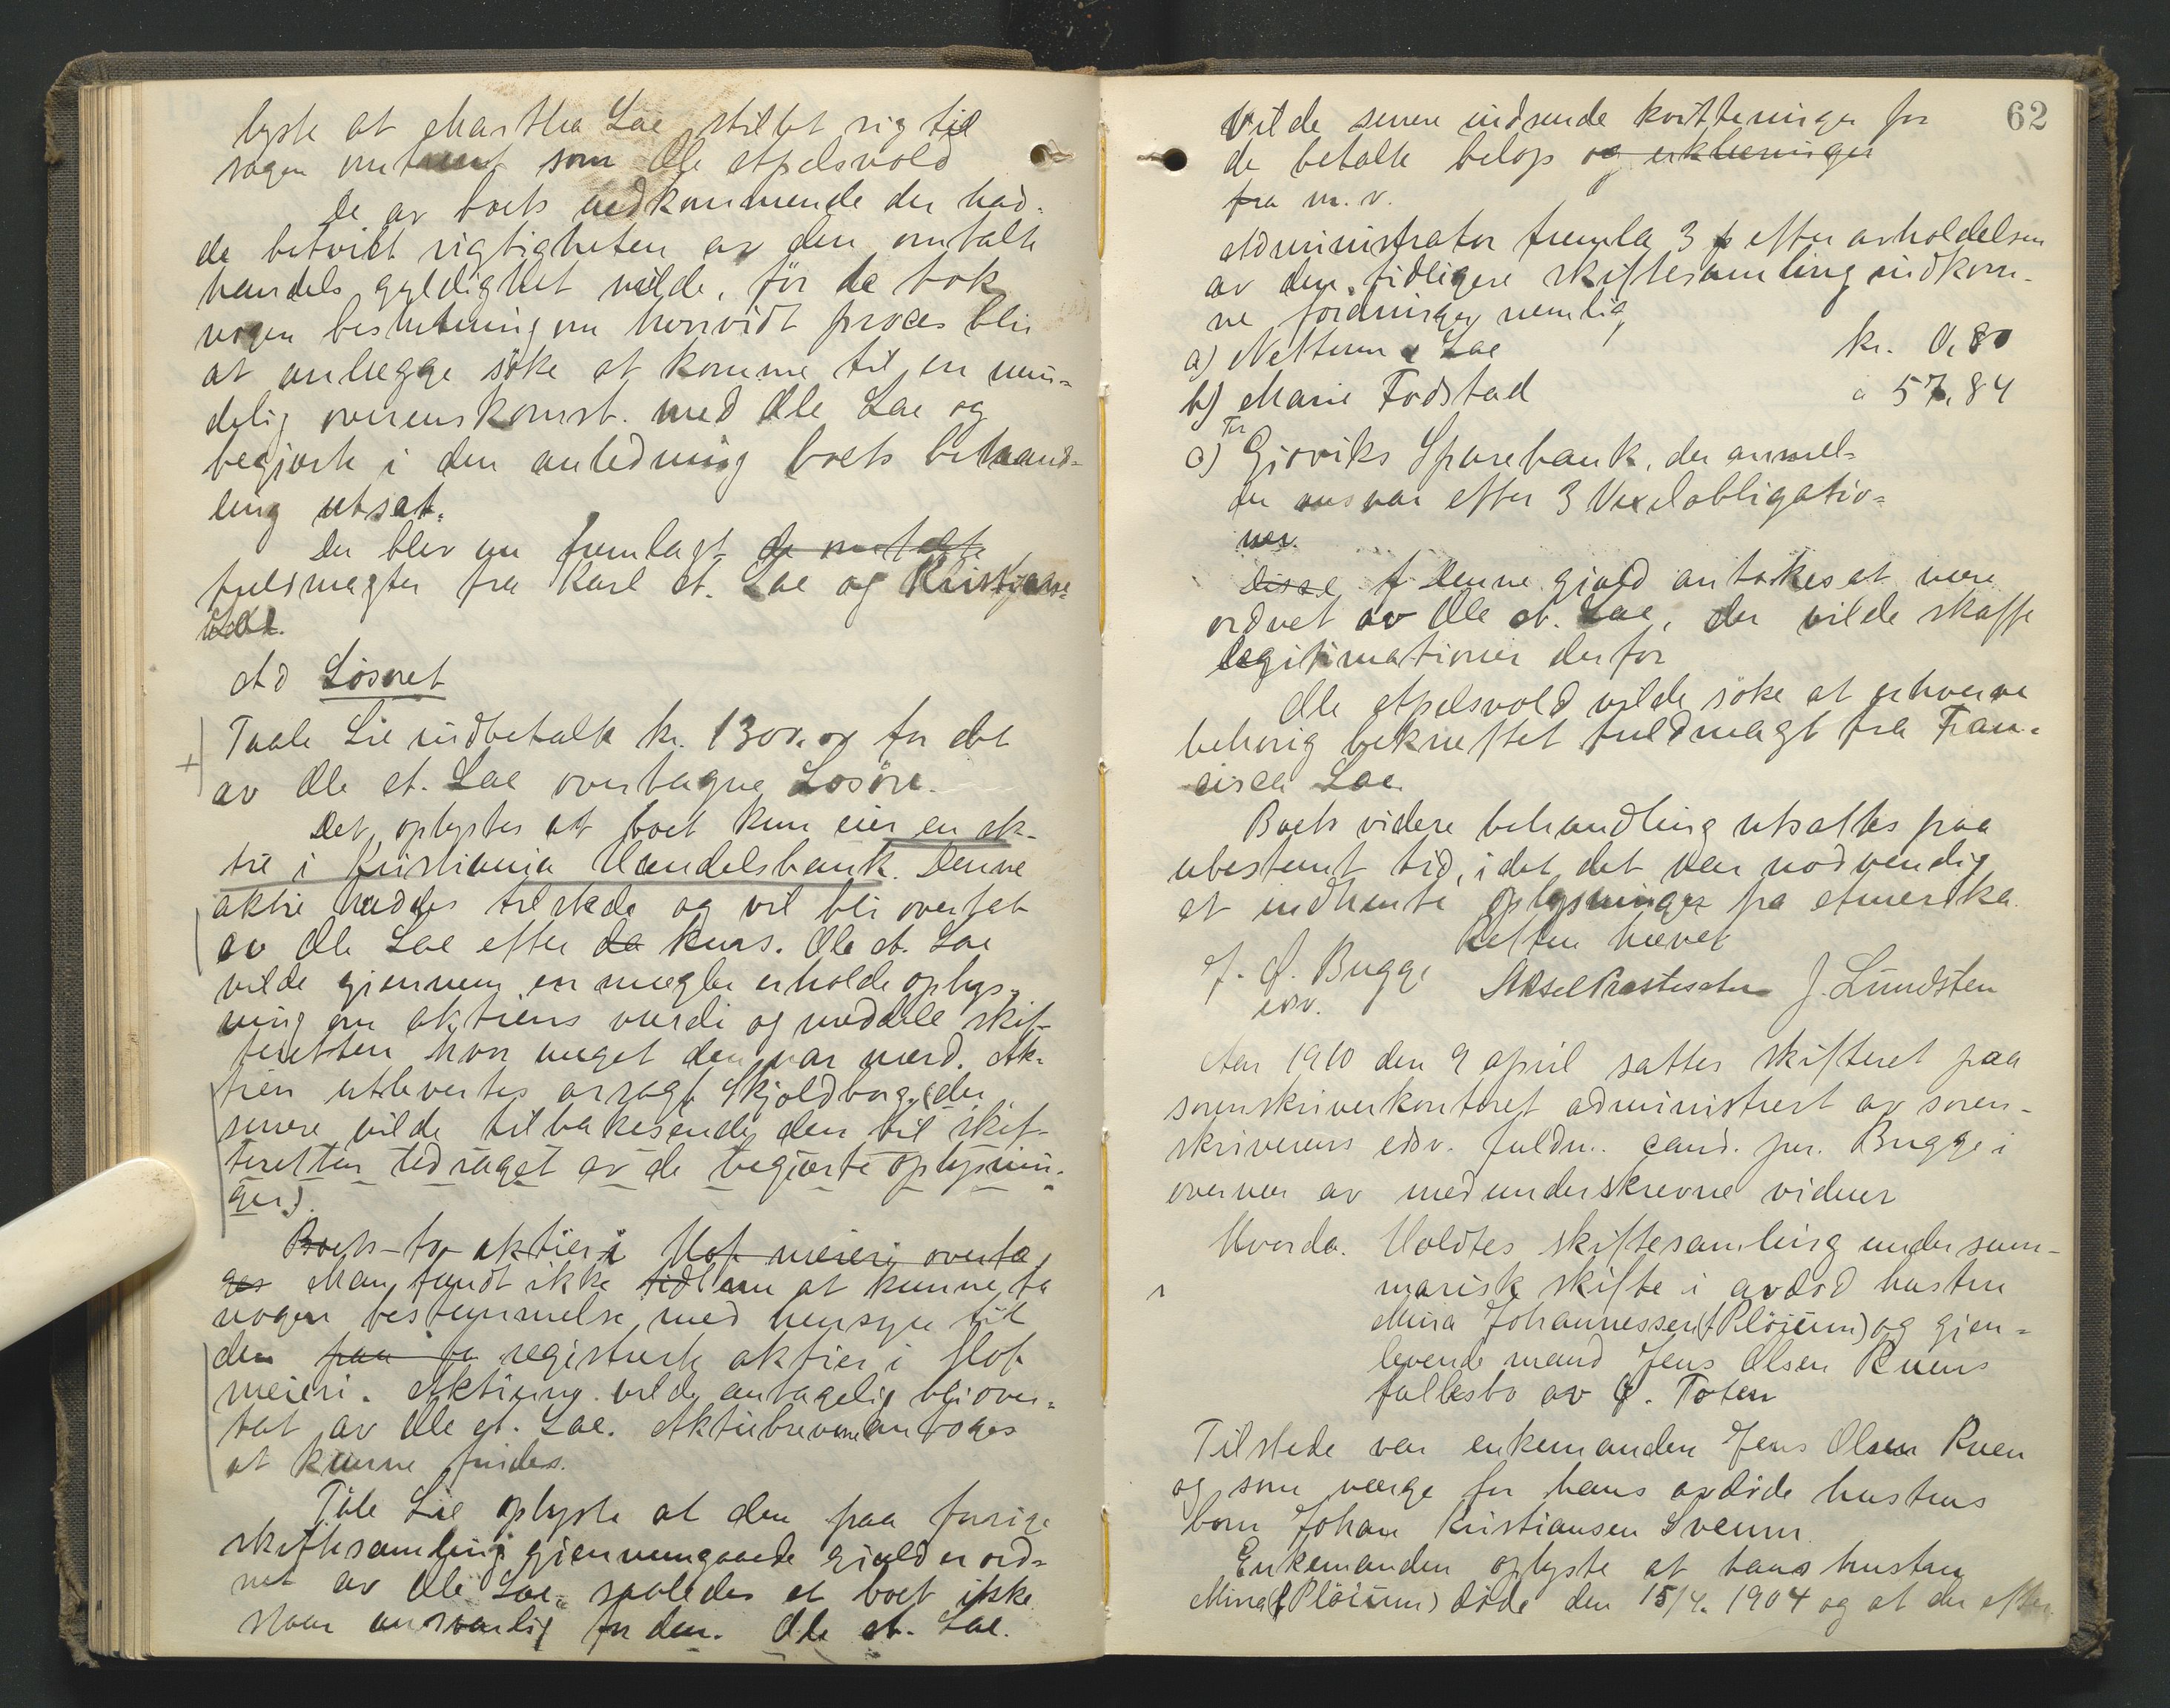 lyste at Martha Lae stillet sig til
sagen omtrent som Ole Apelsvold
De av boets vedkommende der had-
de betvilt rigtigheten av den omtalte
handels gyldighet vilde, før de tok
nogen beslutning om hvorvidt proces blir
at anlægge søke at komme til en min-
delig overenskomst med Ole Lae og
begjærte i den anledning boets behand-
ling utsat.
Der blev nu fremlagt de omtalte
fuldmagter fra Karl A. Lae og Kristiane
Lae.
Ad Løsøret
Taale Lie indbetalte kr. 1300.00 for det
av Ole A. Lae overtagne Løsøre.
Det oplystes at boet kun eier en ak-
tie i Kristiania Handelsbank. Denne
aktie haddes tilstede og vil bli overtat
av Ole Lae efter da kurs. Ole A. Lae
vilde gjennem en mægler erholde oplys-
ning om aktiens værdi og meddele skif-
teretten hvor meget den var værd. Ak-
tien utlevertes orsagf. Skjoldborg (der
senere vilde tilbakesende den til skif-
teretten ledsaget av de begjærte oplysnin-
ger).
Boets to aktier i Hof meieri overta
ges Man fandt ikke tidl om at kunne ta
nogen bestemmelse med hensyn til
den paa fo registrerte aktier i Hof
meieri. Aktierne vilde antagelig bli over-
tat av Ole A. Lae. Aktiebrevene antoges
at kunne findes.
Tåle Lie oplyste at den paa forrige
skiftesamling gjennemgaaede gjæld er ord-
net av Ole Lae, saaledes at boet ikke
staar ansvarlig for den. Ole A. Lae.
62
Vilde senere indsende kvitteringer for
de betalte beløp og erklæringer
fra m. v.
Administrator fremla 3 p efter avholdelsen
av den tidligere skiftesamling indkom-
ne fordringer nemlig
a) Nettum & Lae kr. 0,80
b) Marie Fodstad " 57,84
c) Gjøviks Sparebank, der anmel-
der ansvar efter 3 Vexelobligatio-
ner.
Disse f Denne gjæld antokes at være
ordnet av Ole A. Lae, der vilde skaffe
legitimationer derfor
Ole Apelsvold vilde søke at erhverve
behørig bekræftet fuldmagt fra Fran-
cisca Lae.
Boets videre behandling utsattes paa
ubestemt tid, idet det var nødvendig
at indhente oplysninger fra Amerika.
Retten hævet
J. A. Bugge Aksel J. Lundsten
edsv.
Aar 1910 den 9 april sattes skifteret paa
sorenskriverkontoret administrert av soren-
skriverens edsv. fuldm. cand. jur. Bugge i
overvær av medunderskrevne vidner
Hvorda. Holdtes skiftesamling under sum-
marisk skifte i avdød hustru
Mina Johannessen (f Pløium) og gjen-
levende mand Jens Olsen Ruens
fællesbo av Ø. Toten
Tilstede var enkemanden Jens Olsen Ruen
og som værge for hans avdøde hustrus
born Johan Kristiansen Sveum.
Enkemanden oplyste at hans hustru
Mina (f Pløium) døde den 15/4. 1904 og at der efter